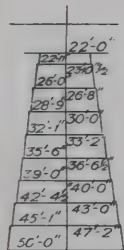 22'-0"
22'-11"
23'-10½"
26'-0"
26'-8"
28'-9"
30'-0"
32'-1"
33'-2"
35'-6"
36'-6½"
39'-0"
40'-0"
42'-4½"
43'-0"
45'-1"
47'-2"
50'-0"